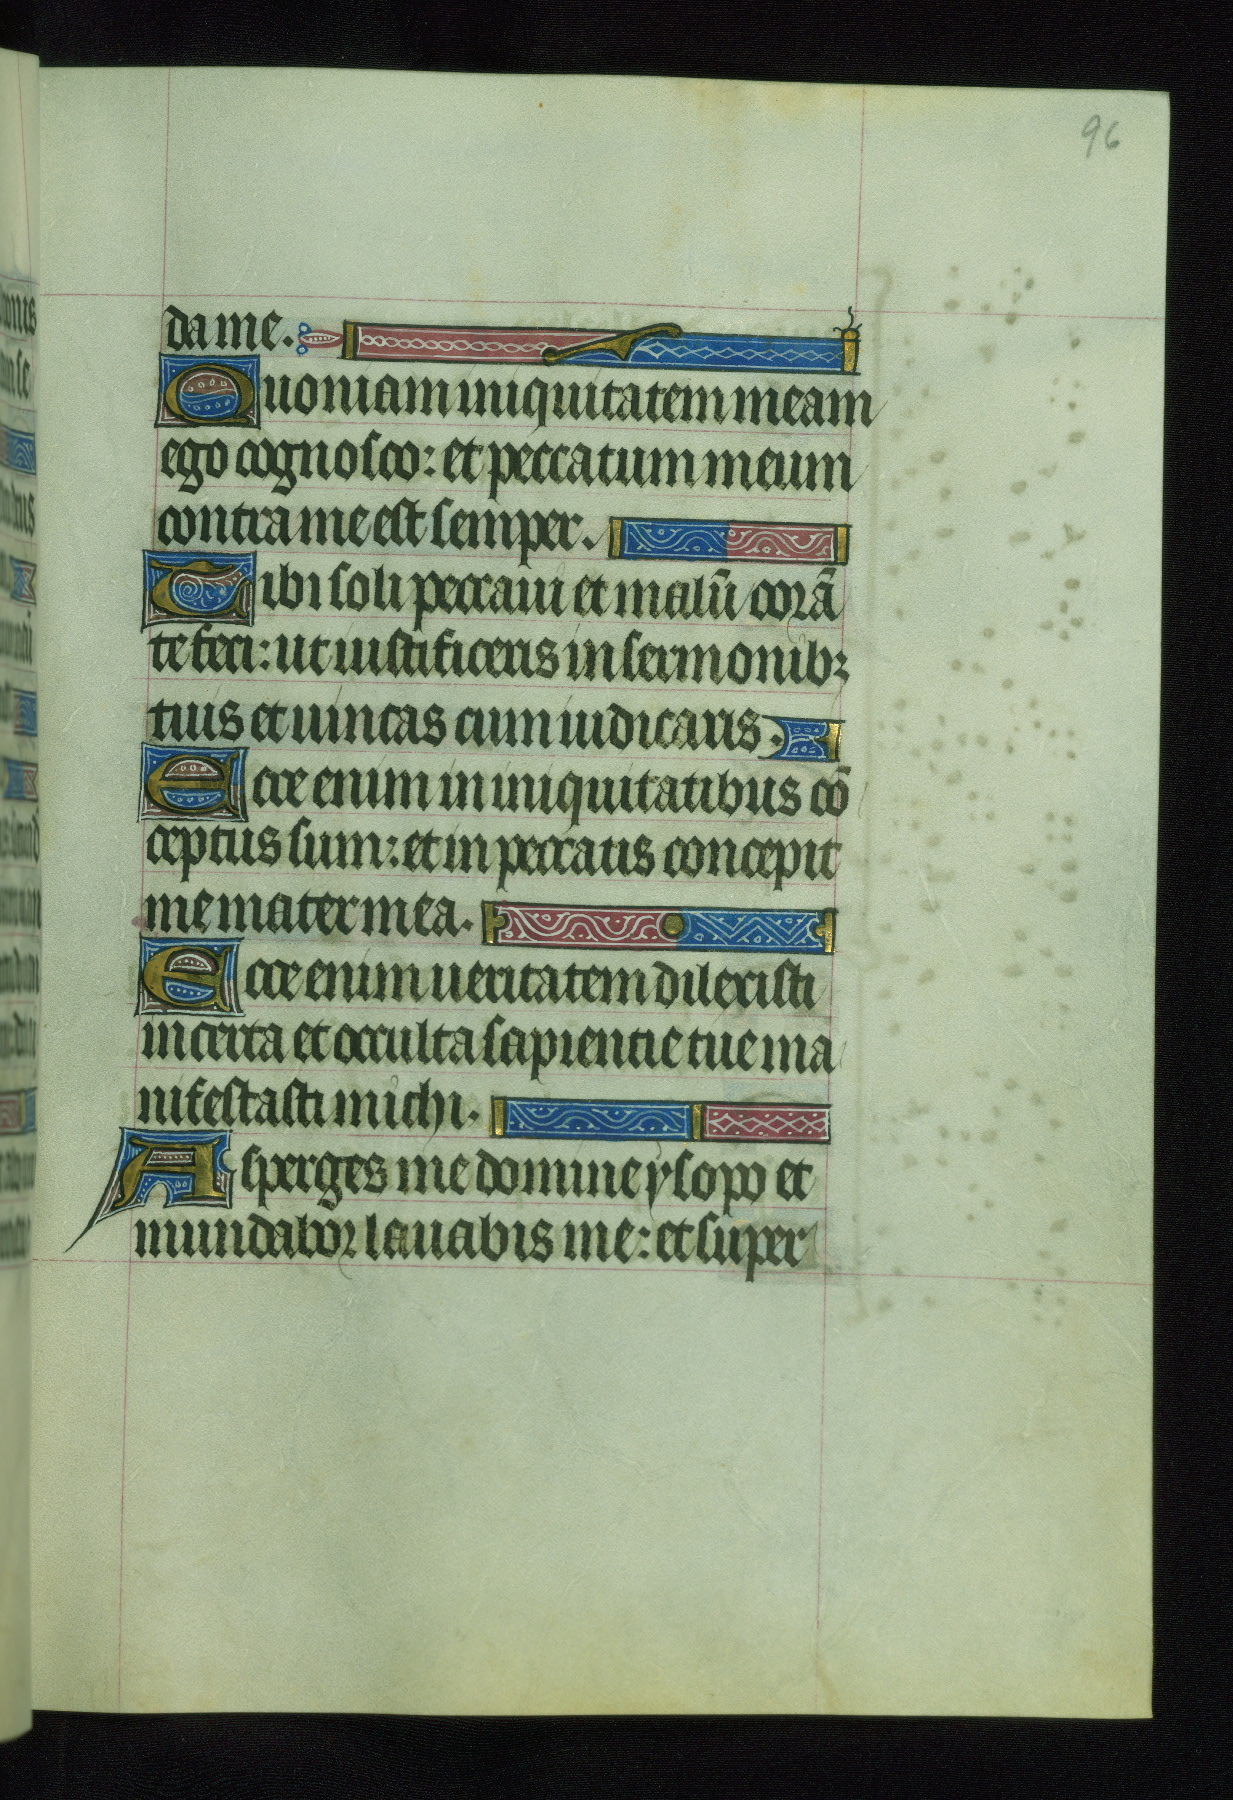 96
da me.
Quoniam iniquitatem meam
ego cognosco: et peccatum meum
contra me est semper.
Tibi soli peccaui et malū corā
te feci: ut iustificeris in sermonibꝫ
tuis et uincas cum iudicaris.
Ecce enim in iniquitatibus cō
ceptus sum: et in peccatis concepit
me mater mea.
Ecce enim ueritatem dilexisti
incerta et occulta sapientie tue ma
nifestasti michi.
Asperges me domine ysopo et
mundabor lauabis me: et super